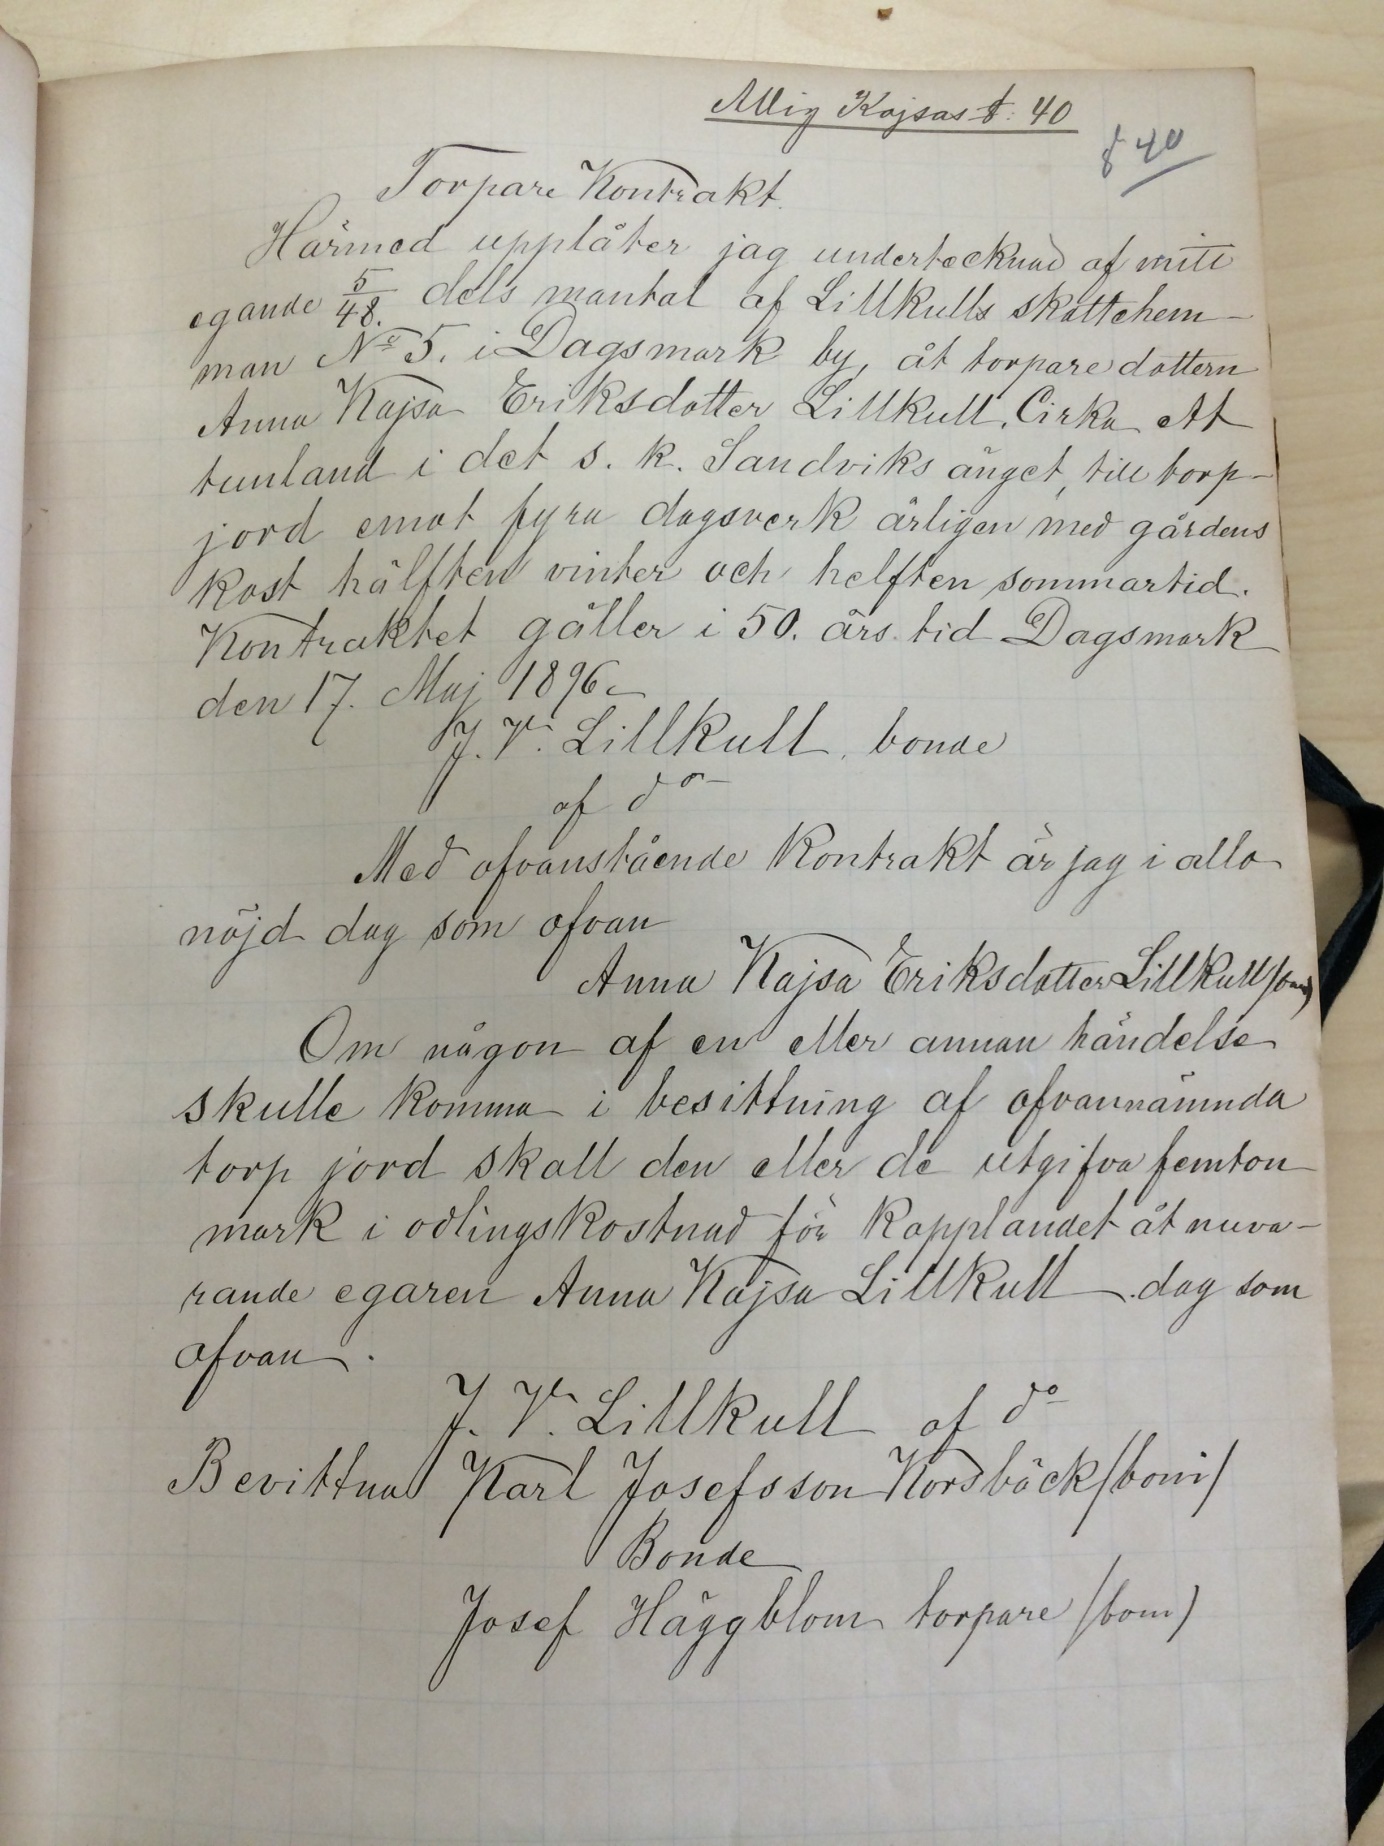 Allig Kajsas t: 40
t 40
Torpare Kontrakt.
Härmed upplåter jag undertecknad af mitt
egande 5/48. dels mantal af Lillkulls skattehem-
man No 5. i Dagsmark by, åt torpare dottern
Anna Kajsa Eriksdotter Lillkull. Cirka et
tunland i det s. k. Sandviks änget, till torp-
jord emot fyra dagsverk årligen med gårdens
kost hälften vinter och helften sommartid.
Kontraktet gäller i 50. års tid Dagsmark
den 17. Maj 1896.
J. V. Lillkull, bonde
af do
Med ofvanstående Kontrakt är jag i allo
nöjd dag som ofvan
Anna Kajsa Eriksdotter Lillkull (bom)
Om någon af en eller annan händelse
skulle komma i besittning af ofvannämnda
torp jord skall den eller de utgifva femton
mark i odlingskostnad för kapplandet åt nuva-
rande egaren Anna Kajsa Lillkull dag som
ofvan.
J. V. Lillkull af do
Bevittna Karl Josefsson Korsbäck (bom)
Bonde
Josef Häggblom torpare (bom)